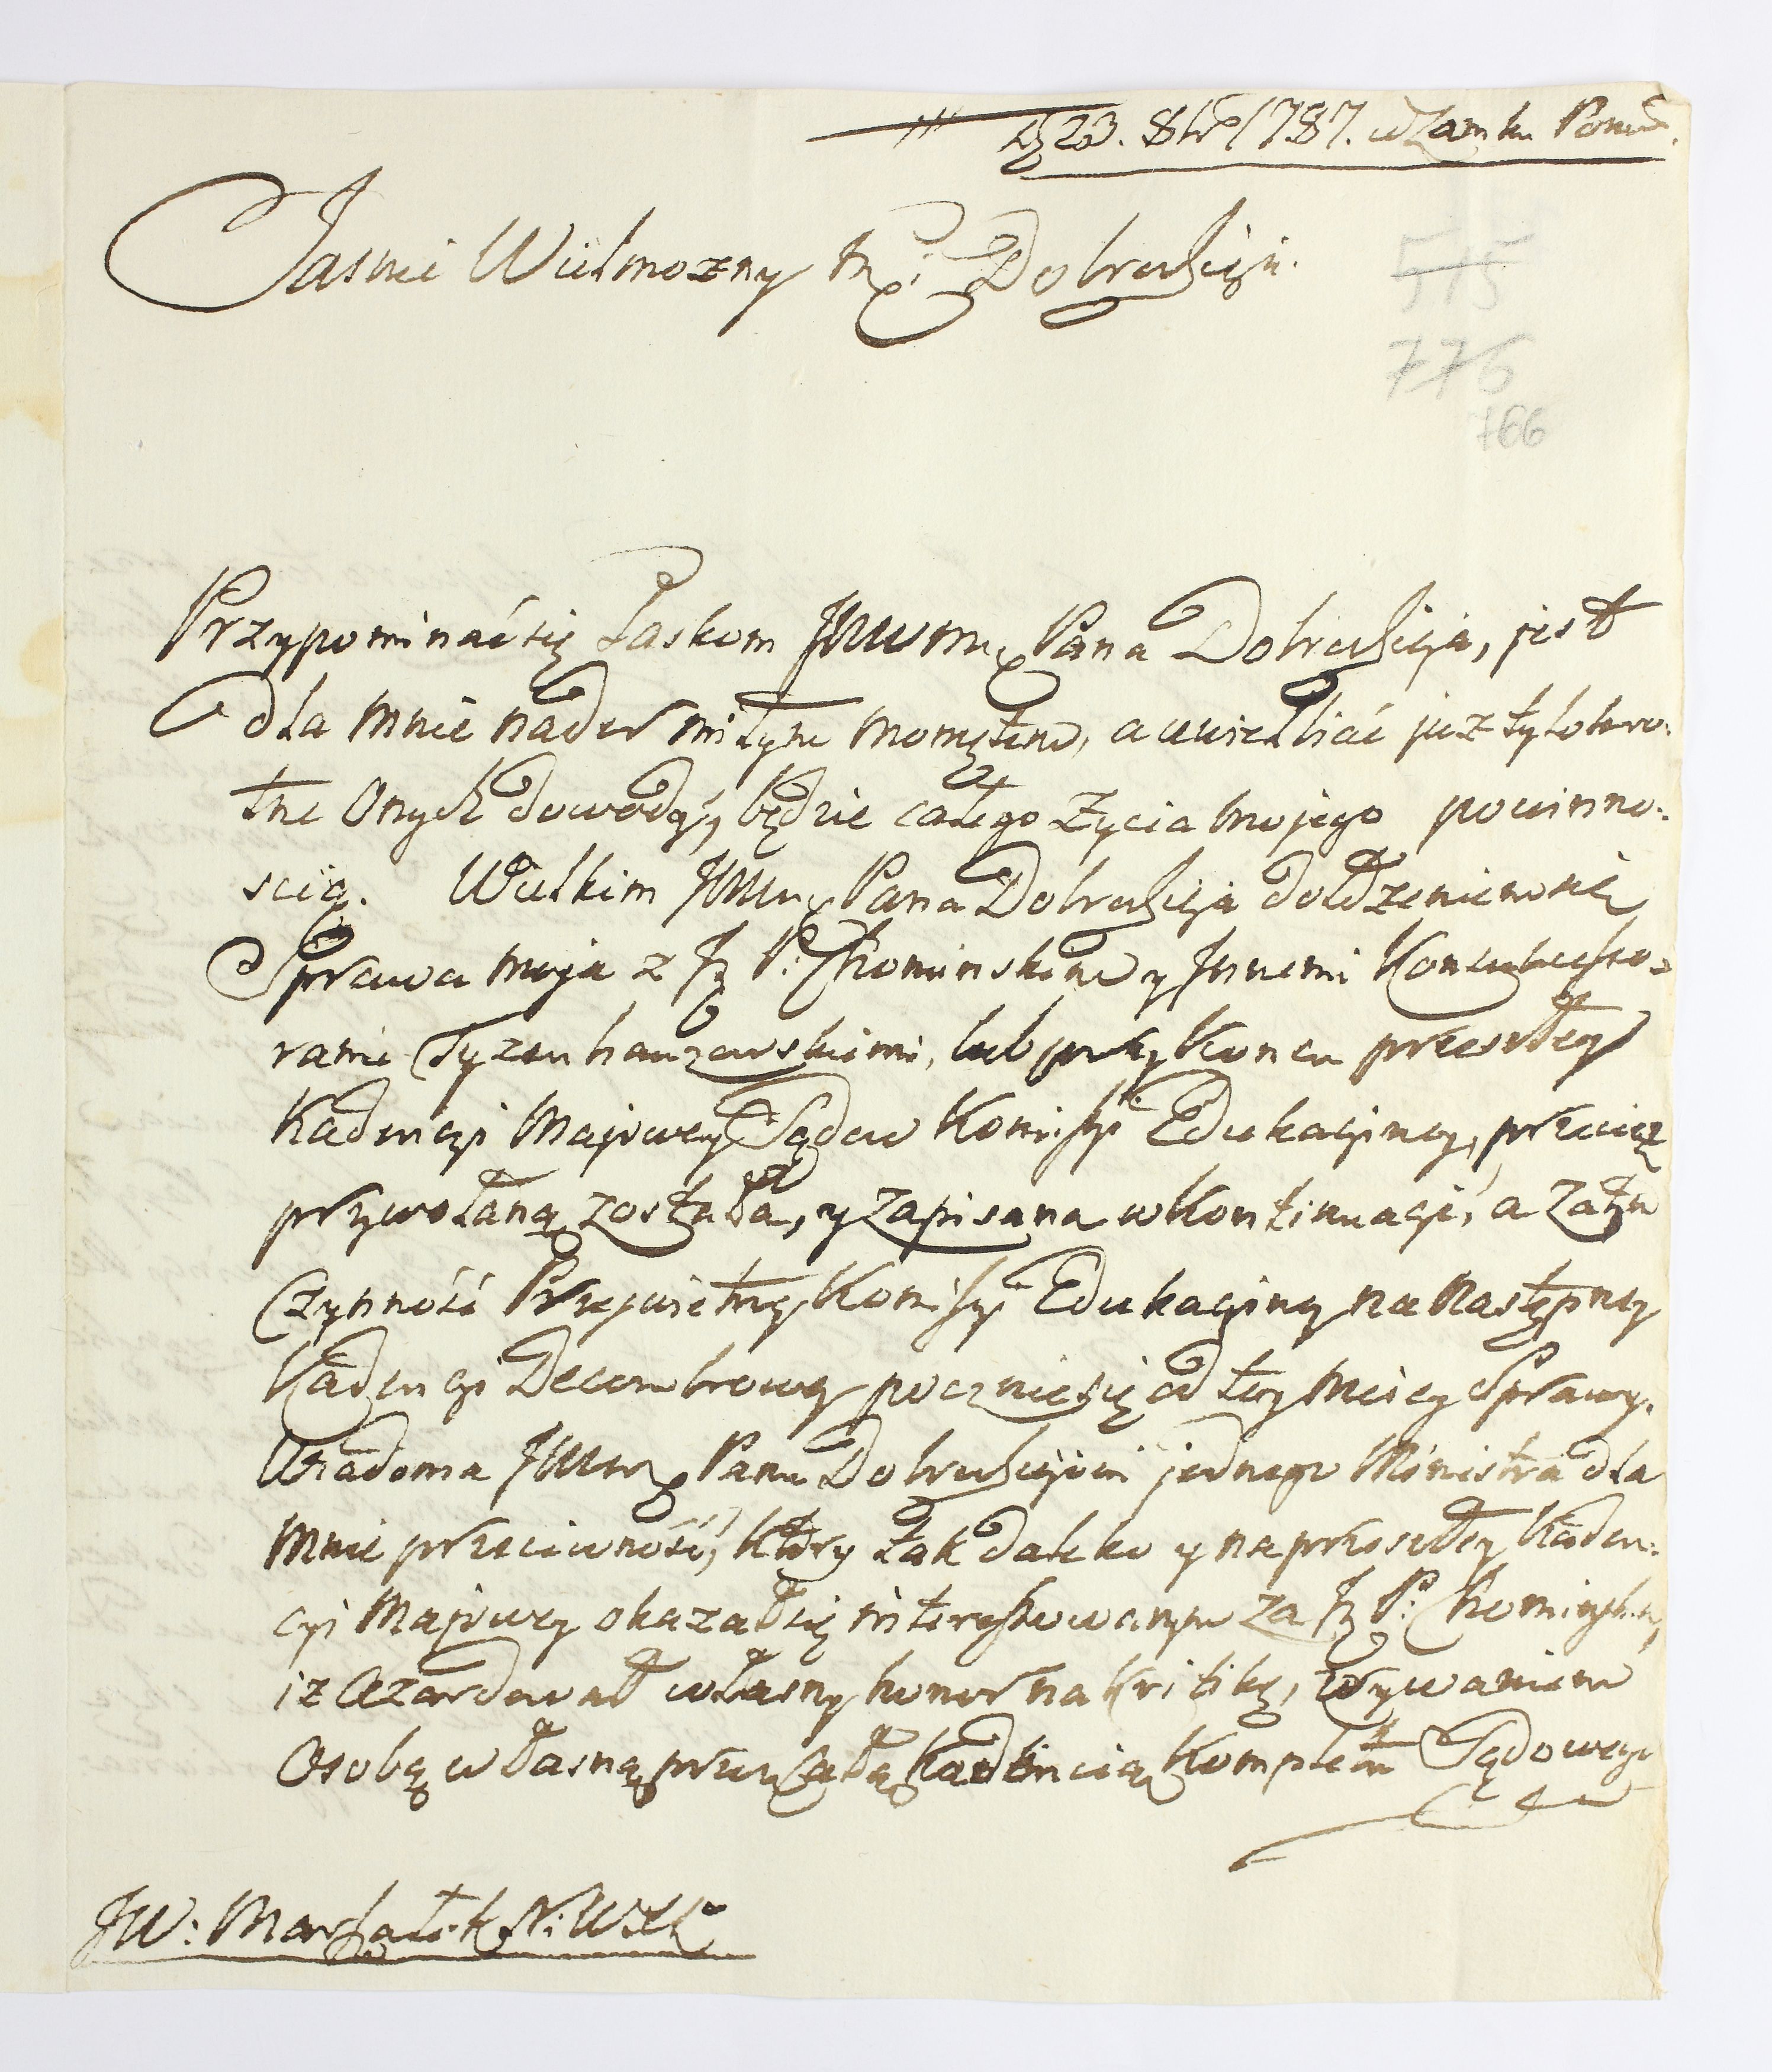 D. 23. 8br 1787. w Zamku
Jasnie Wielmozny Dobrodzieju.
515
776
766
Przypominać się Łaskom JWWM Pana Dobrodzieja, jest
dla mnie nader miłym momętem, a uwielbiać już tylokro:
tne Onych dowody, będzie całego życia mojego powinno:
scią. Wielkim JWWM Pana Dobrodzieja
Sprawa moja z J P: Chominskim y Jnnemi
rami Tyzenhauzowskiemi, lub przy Koncu przeszłey
Kadencyi Majowey Sądow Komissyi Edukacyiney, przecięż
przywołaną została, y zapisana w Kontinuacyi, a zatym
Czynność Prześwietney Komissyi Edukacyiney na Następney
Kadencyi Decembrowey pocznie się od tey mojey Sprawy.
Wiadoma JWWM Panu Dobrodziejowi jednego Ministra dla
mnie przeciwność, ktory tak daleko y na przeszłey Kaden:
cyi Majowey okazał się interessowanym za J P: Chominskim,
iż Azardował własny honor na Kritikę, zrywaniem
Osobą własną przez Całą Kadencią Kompletu Sądowego
JW: Marszałek N: W